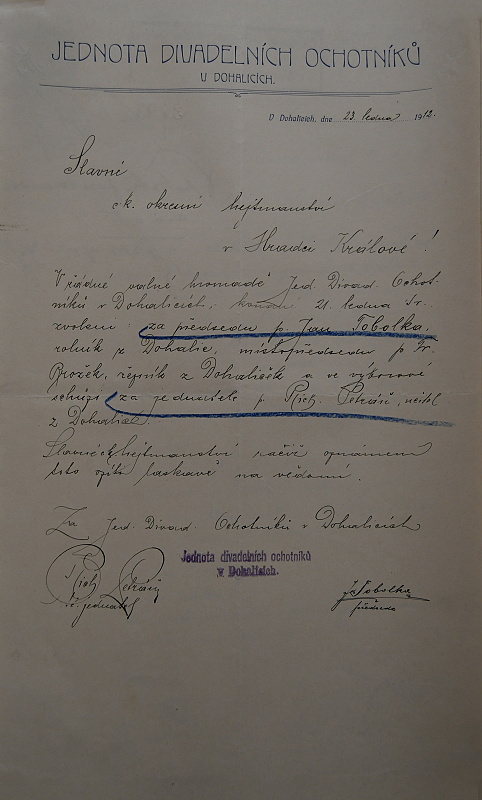 JEDNOTA DIVADELNÍCH OCHOTNÍKŮ
U DOHALICÍCH.
V Dohalicích, dne 23. ledna 1912.
Slavné
c.k. okresní hejtmanství
v Hradci Králové!
V řádné valné hromadě Jed. Divad. Ochot-
níků v Dohalicích, konané 21. ledna t.r.
zvoleni: za předsedu p. Jan Tobolka,
rolník z Dohalic, místopředsedu p. Fr.
Brožek, řezník z Dohaliček a ve výborové
schůzi za jednatele p. Rich. Petráň, učitel
z Dohalic.
Slavné c.k. hejtmanství račiž oznámení
toto vzíti laskavě na vědomí.
Za Jed. Divad. Ochotníků v Dohalicích
Jednota divadelních ochotníků
v Dohalicích.
Rich Petráň
jednatel
J. Tobolka
předseda